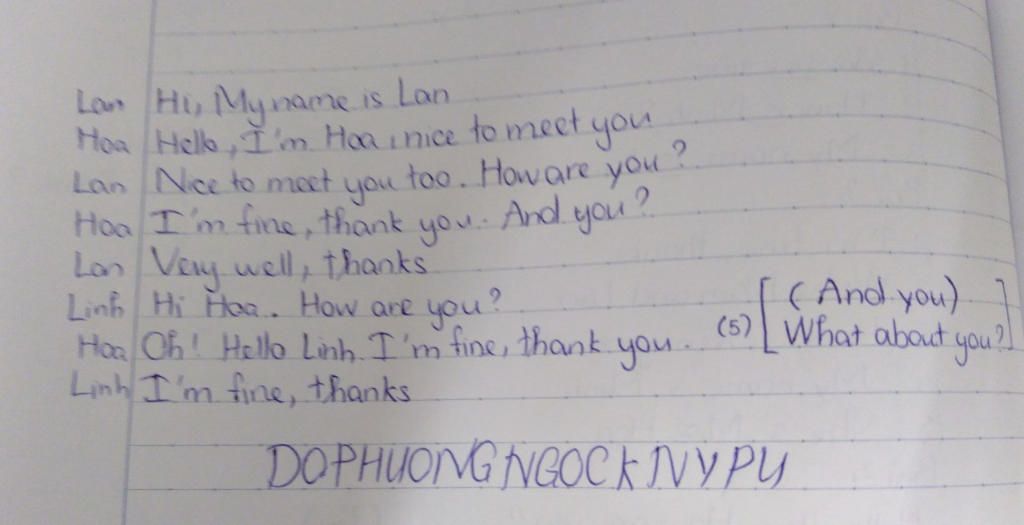 Lan Hi, My name is Lan
Hoa Hello, I'm Hoa, nice to meet you
Lan Nice to meet you too. How are you?
Hoa I'm fine, thank you. And you?
Lan Very well, thanks
Linh Hi Hoa. How are you?
Hoa Oh! Hello Linh. I'm fine, thank you. (5) [(And you) What about you?]
Linh I'm fine, thanks
DOPHUONGNGOCKNYPU